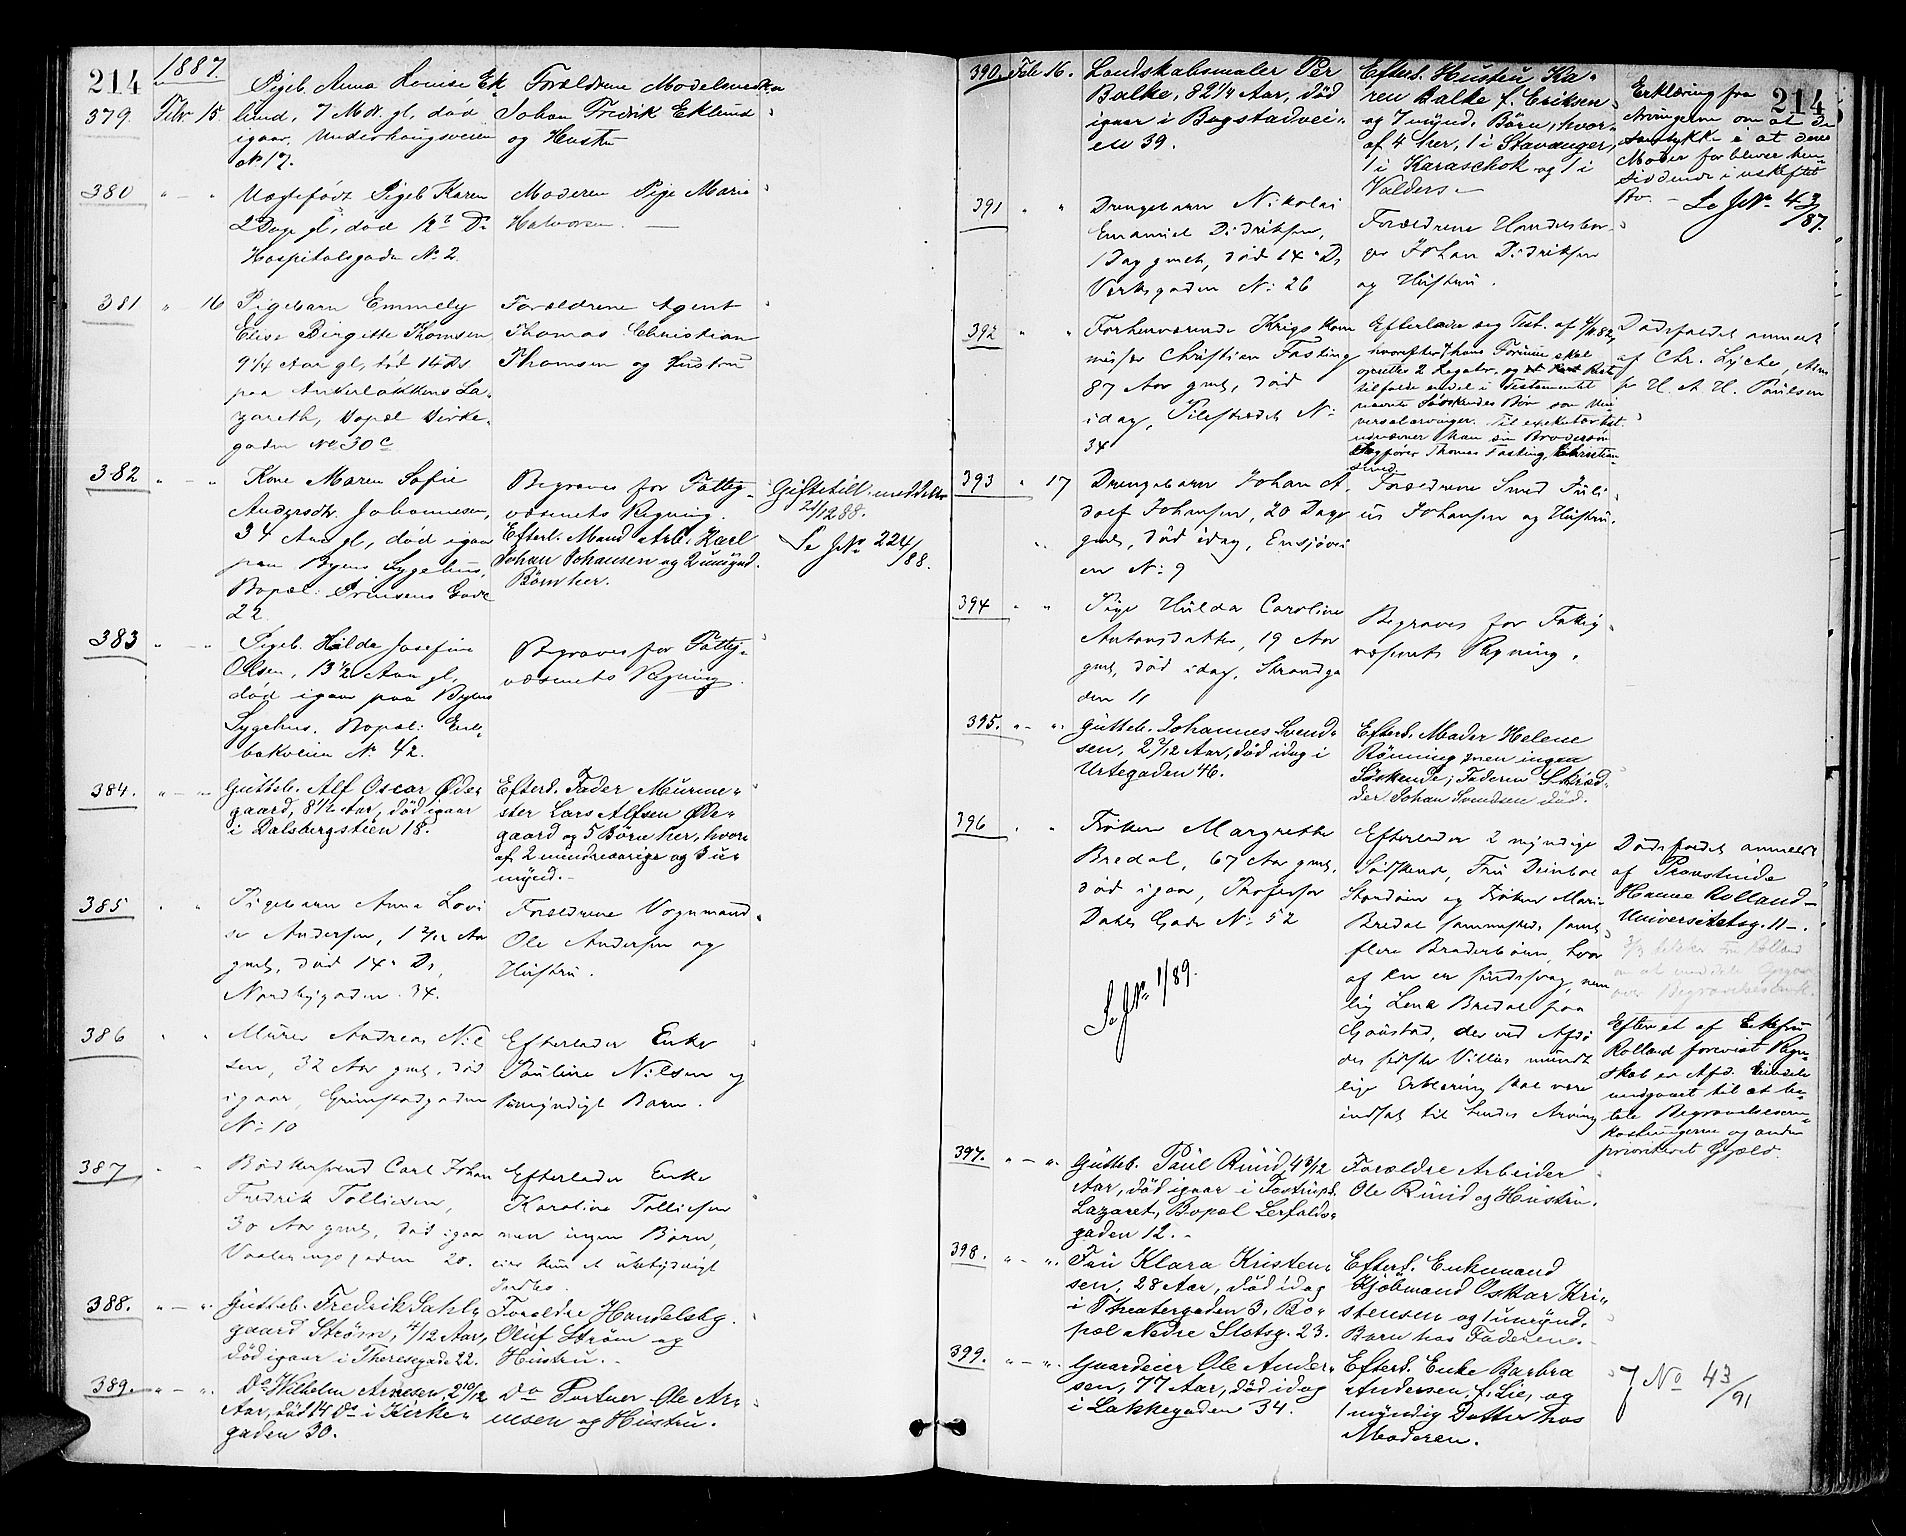 214
1887.
379. Febr 15 Pigeb. Anna Louise Ek-
lund, 7 Md. gl, död
igaar, Underhaugsveien
No 17.
Forældrene Modelsnedker
Johan Fredrik Eklund
og Hustru
380 " - " Uægtefödt Pigeb Karen
2 Dage gl, död 12te Ds
Hospitalsgaden No 2.
Moderen Pige Maria
Halvorsen. —
381 " 16 Pigebarn Emmely
Elise Birgitte Thomsen
9 1/4 Aar gl, död 14 Ds
paa Ankerløkkens La-
zareth, Bopæl Kirke-
gaden No 30 c
Forældrene Agent
Thomas Christian
Thomsen og Hustru
382 " - " Kone Maren Sofie
Andersdtr. Johannesen,
34 Aar gl, död igaar
paa Byens Sygehus,
Bopæl: Prinsens Gade
22.
Begraves for Fattig-
væsenets Regning.
Efterl. Mand Arb. Karl
Johan Johansen og 2 umynd.
Börn her.
Giftetill. meddelt
21/12 88.
Se JNo 224/88.
383 " - " Pigeb. Hilda Josefine
Olsen, 13 1/2 Aar gl,
död igaar paa Byens
Sygehus. Bopæl: Ene-
bakveien No 42.
Begraves for Fattig-
væsenets Regning.
384. " - " Gutteb. Alf Oscar Øde-
gaard, 8 1/2 Aar, död igaar
i Dalsbergstien 18.
Efterl. Fader Murme-
ster Lars Alfsen Øde-
gaard og 5 Börn her, hvor-
af 2 mindreaarige og 3 u-
mynd. -
385 " " Pigebarn Anna Lovi
se Andersen, 1 2/12 Aar
gml, död 14 Ds,
Nordbygaden 34.
Forældrene Vognmand
Ole Andersen og
Hustru.
386 " " Murer Andreas Nil
sen, 32 Aar gml, död
igaar, Grimstadgaden
No 10
Efterlader Enke
Pauline Nilsen og
1 umyndigt Barn.
387 " " Bödkersvend Carl Johan
Fredrik Tollissen,
30 Aar gml, död igaar
Vaalerenggaden 20.
Efterlader Enke
Karoline Tollissen
men ingen Börn,
eier kun et ubetydeligt
Indbo.
388. " - " Gutteb. Fredrik Dahl-
gaard Ström, 4/12 Aar,
död igaar i Theresegade 22.
Forældre Handelsbg.
Oluf Ström og
Hustru. -
389. " - " Do Wilhelm Arnesen, 2 10/12
Aar, död 14 Ds i Kirke-
gaden 30.
Do Portner Ole Ar-
nesen og Hustru.
214
390. Feb 16. Landskabsmaler Per
Balke, 82 1/4 Aar, död
igaar i Bogstadvei-
en 39.
Efterl. Hustru Ka-
ren Balke f. Eriksen
og 7 mynd. Börn, hvor-
af 4 her, 1 i Stavanger,
1 i Karaschok og 1 i
Valders. -
Erklæring fra
Arvingerne om at de
samtykke i at deres
Moder forbliver hen-
siddende i uskiftet
Bo. - Se JNo 43/87.
391 " " Drengebarn Nikolai
Emanuel Didriksen,
1 Dag gml, död 14 Ds
Verksgaden No 26
Forældrene Handelsbor-
ger Johan Didriksen
og Hustru.
392 " " Forhenværende Krigskom
missær Christian Fasting
87 Aar gml, död
idag, Pilestrædet No
34
Efterlader sig Test. af
hvorefter i hans Formue skal
oprettes 2 Legater, og Rest
tilfalde endel i Testamentet
nævnte Södskendes Börn som Uni-
versalarvinger. Til exekutor test.
udnævner han sin Brodersön
Sagförer Thomas Fasting, Christian-
sund.
Dödsfaldet anmeldt
af Chr. Lyche,
pr H. A. H. Paulsen
393 " 17 Drengebarn Johan A
dolf Johansen, 20 Dage
gml, död idag, Ensjövei
en No 9
Forældrene Smed Juli
us Johansen og Hustru.
394 " " Pige Hulda Caroline
Antonsdatter, 19 Aar
gml, död idag, Strandga
den 11
Begraves for Fattig
væsenets Regning.
395. " - " Gutteb. Johannes Svend-
sen, 2 2/12 Aar, död idag i
Urtegaden 46.
Efterl. Moder Helene
Rönning men ingen
Söskende; Faderen Skræd-
der Johan Svendsen död.
396 " " Fröken Margrethe
Bredal, 67 Aar gml,
död igaar, Professor
Dahls Gade No 52
Se JNo 1/89.
Efterlader 2 myndige
Södskende, Fru Deinboe
Stordöen og Fröken Marie
Bredal sammesteds samt
flere Broderbörn, hvor
af en er sindssvag, nem
lig Lena Bredal paa
Gaustad, der ved Afdö
des sidste Villies mundt
lige Erklæring skal være
indsat til hendes Arving
Dödsfaldet anmeldt
af Provstinde
Hanne Rolland -
Universitetsg. 11 -.
Efter et af Enkefru
Rolland forevist Regn-
skab er Afd. Eiendele
medgaaet til at be-
tale Begravelsesom-
kostningerne og anden
prioriteret Gjæld.
397. " - " Gutteb. Paul Ruud, 4 3/12
Aar, död igaar i Tostrups
Lazaret, Bopæl Lerfalds-
gaden 12. -
Forældre Arbeider
Ole Ruud og Hustru.
398. " - " Fru Klara Kristen-
sen, 28 Aar, död idag
i Theatergaden 3, Bo-
pæl Nedre Slotsg. 23.
Efterl. Enkemand
Kjöbmand Oskar Kri-
stensen og 1 umynd.
Barn hos Faderen. -
399. " - " Guardeier Ole Ander-
sen, 77 Aar, död idag
i Lakkegaden 34.
Efterl. Enke Barbra
Andersen, f. Lie, og
1 myndig Datter hos
Moderen.
J No 43/91